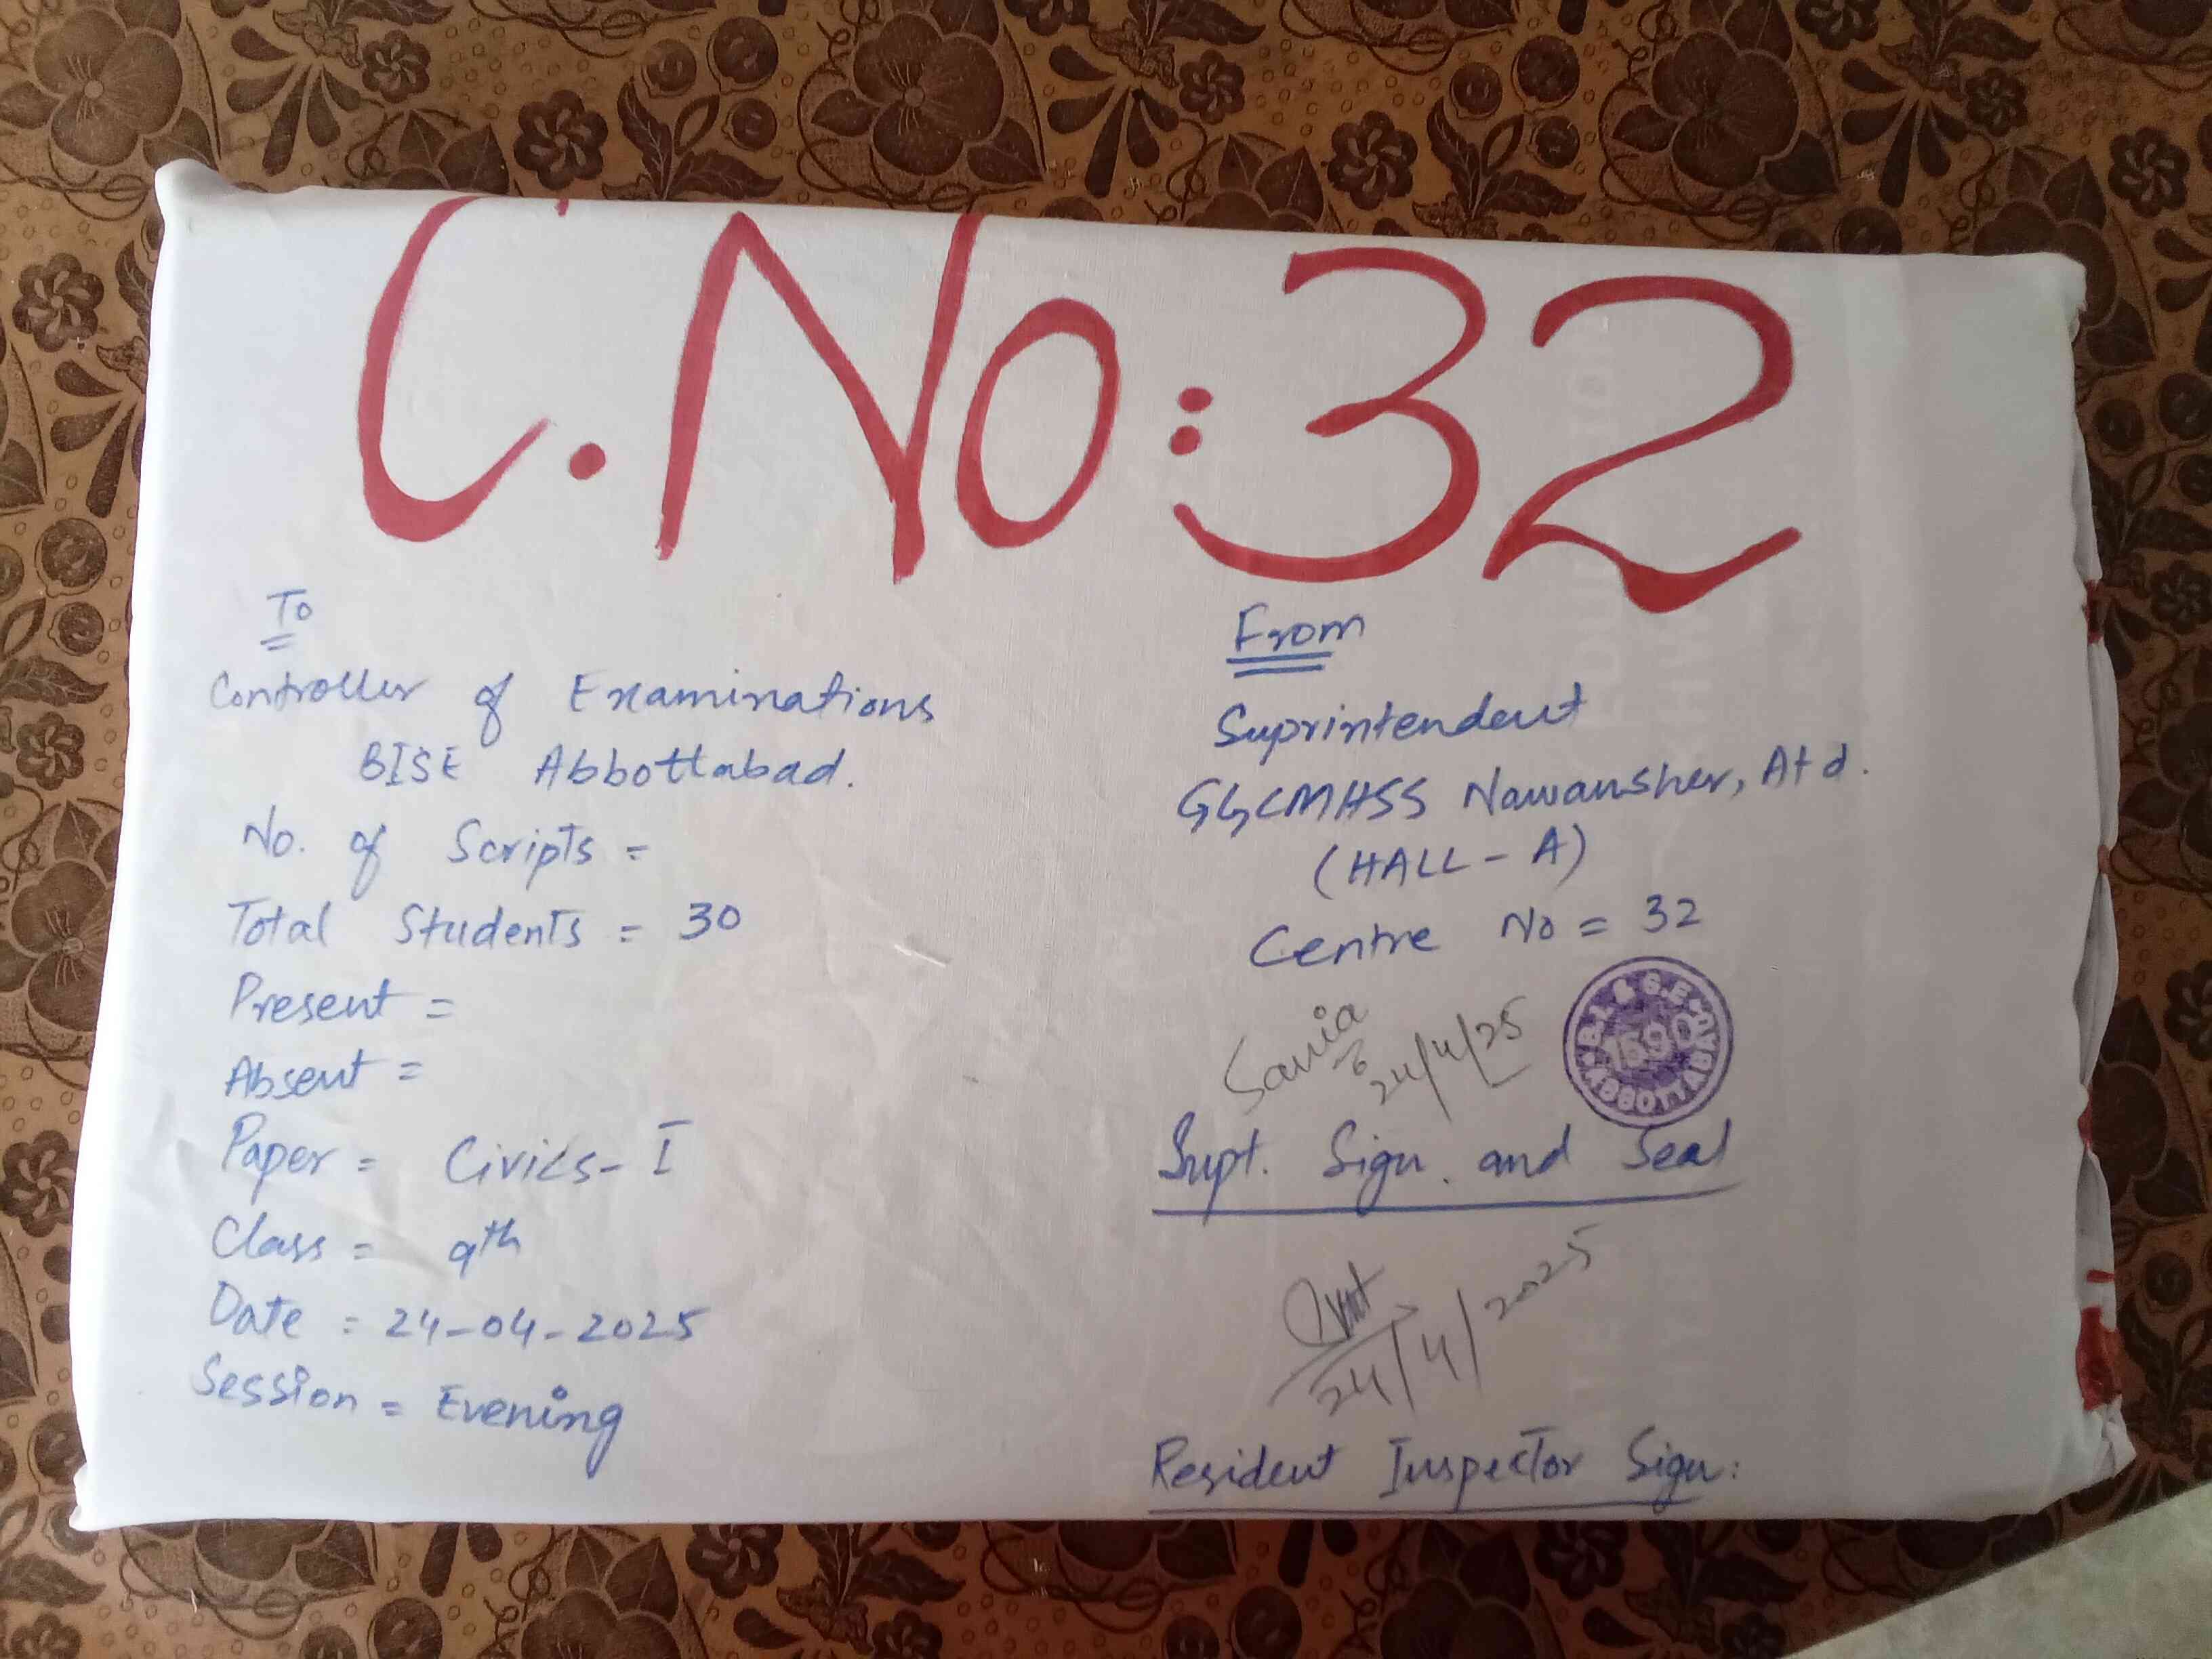 C.No:32
To
Controller of Examinations
BISE Abbottabad.
No. of Scripts =
Total Students = 30
Present =
Absent =
Paper = Civics-I
Class = 9th
Date = 24-04-2025
Session = Evening
From
Suprintendent
GGCMHSS Nawansher, Atd.
(HALL-A)
Centre No = 32
Sania
24/4/25
B.I. & S.E. ABBOTTABAD
1590
Supt. Sign. and Seal
24/4/2025
Resident Inspector Sign: